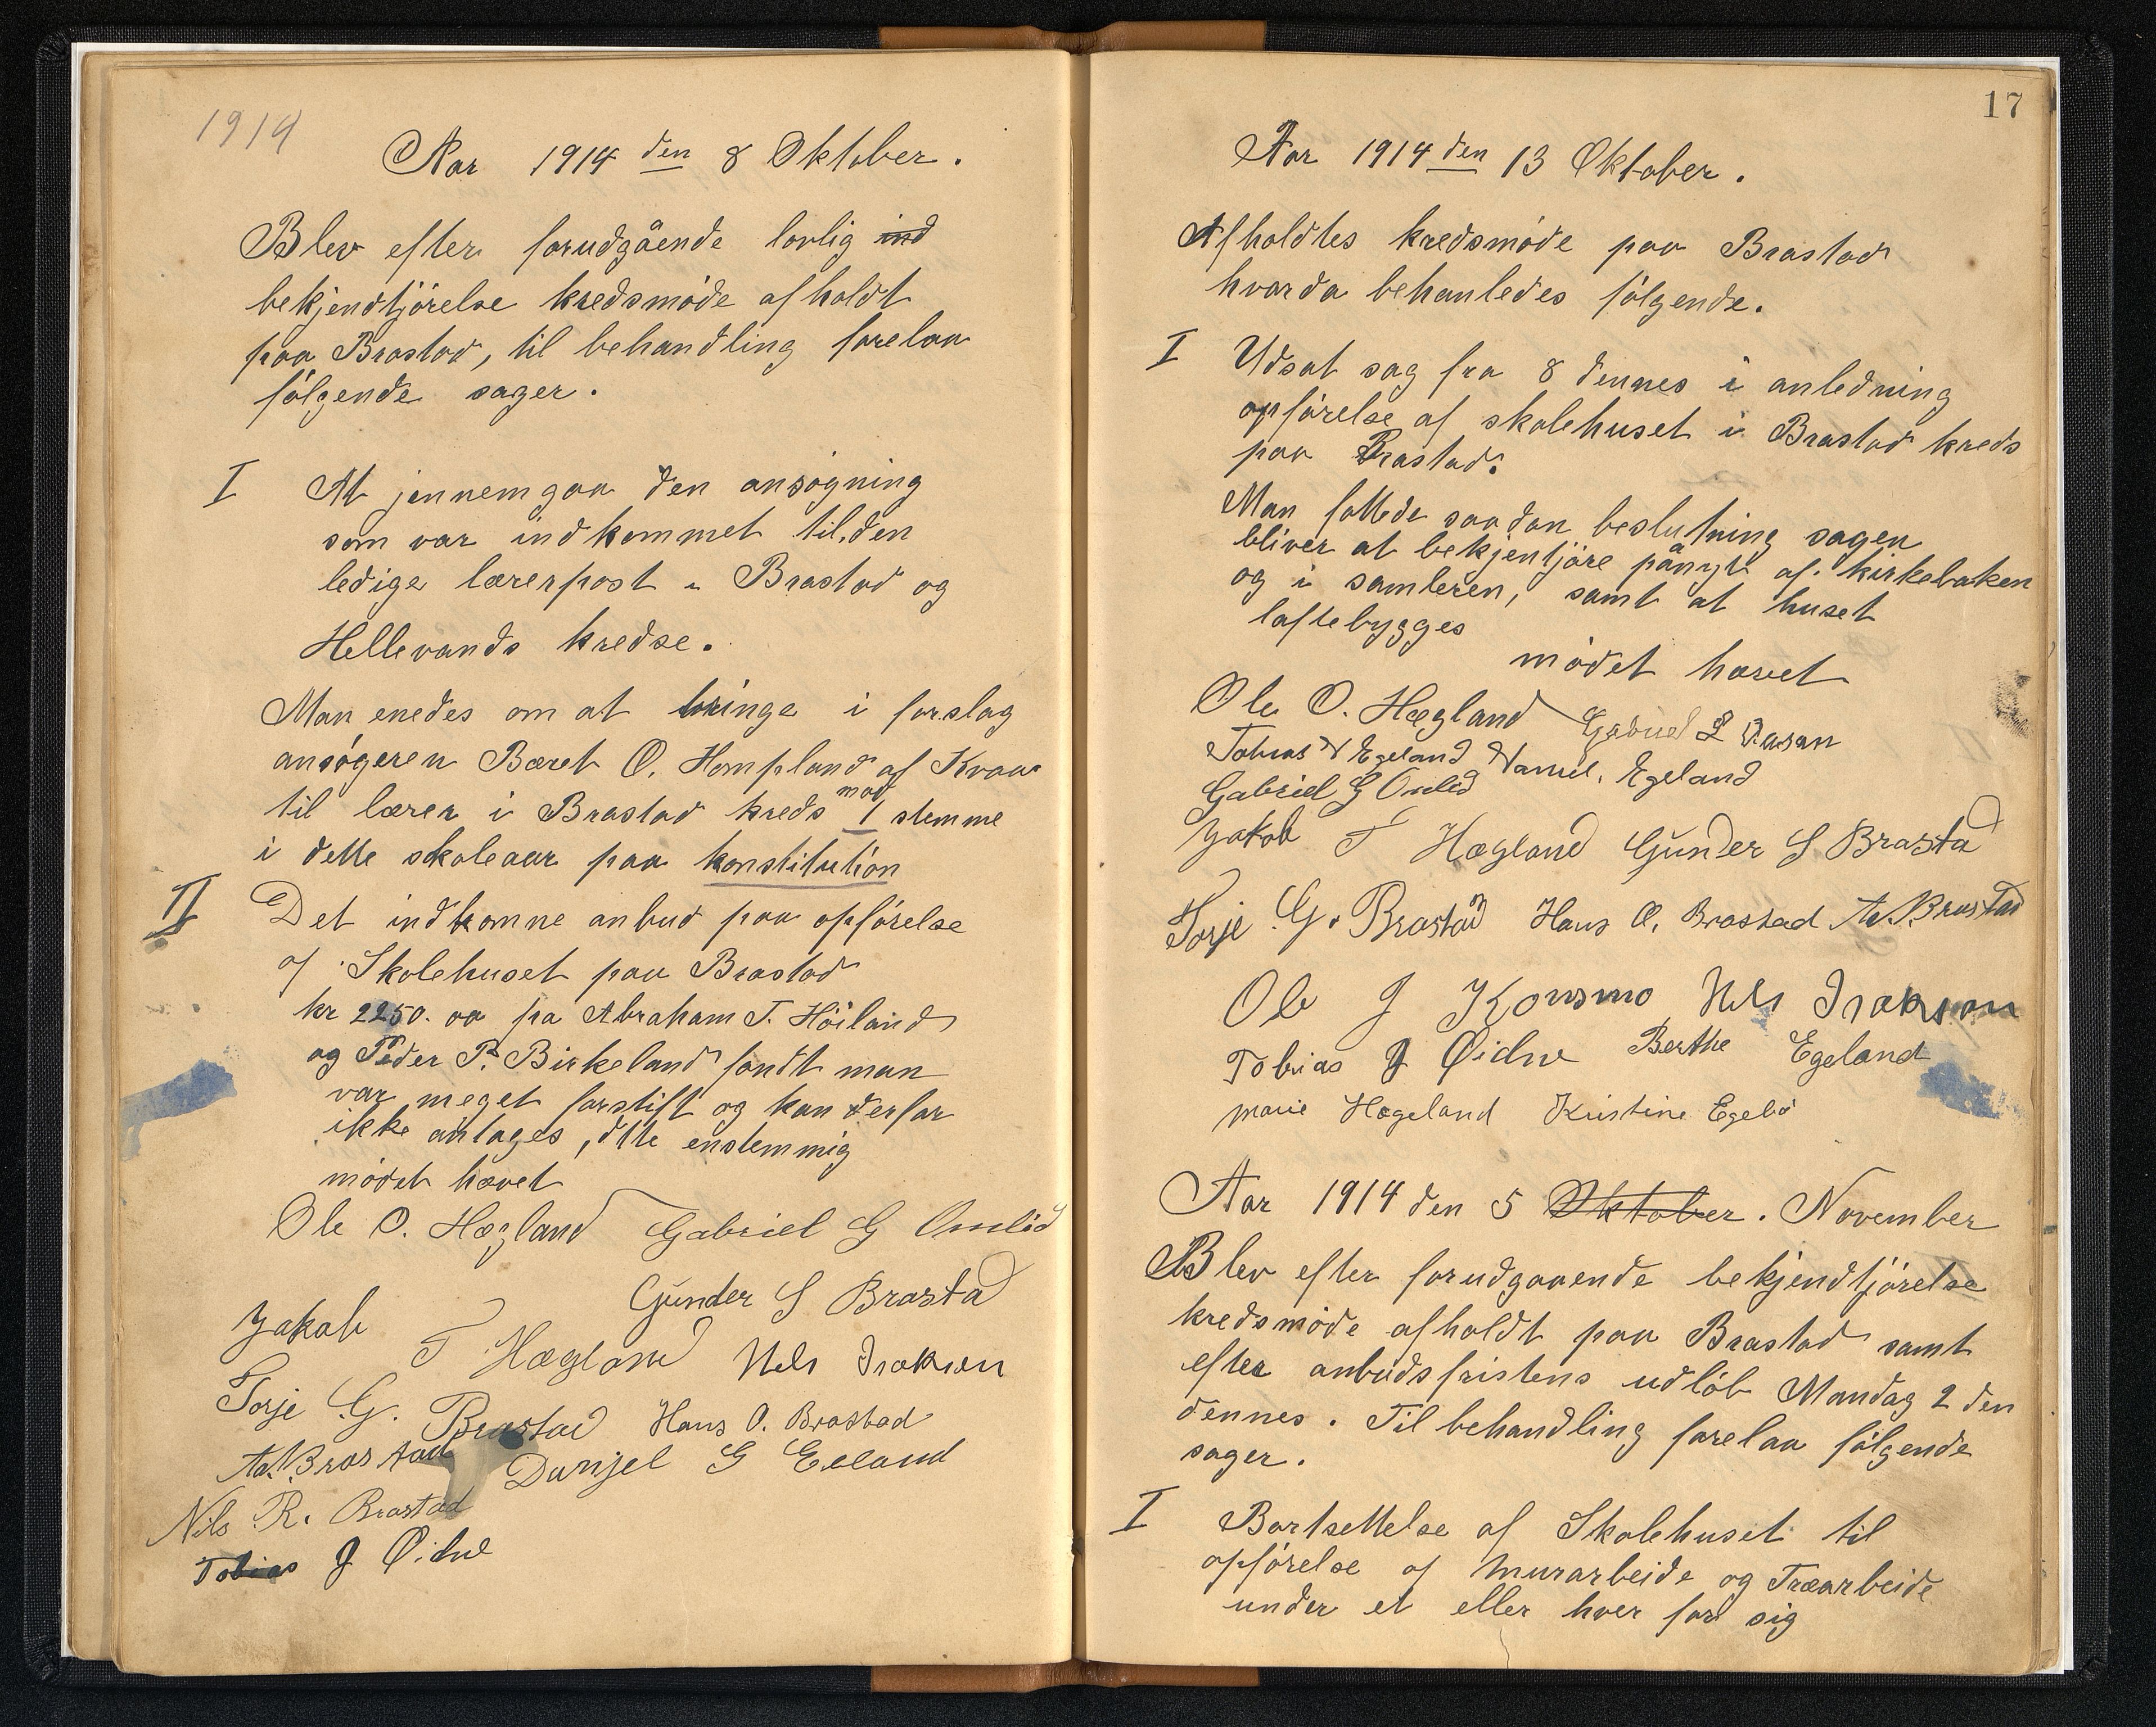 1914
Aar 1914 den 8 Oktober.
Blev efter forudgående lovlig ind
bekjendtjörelse kredsmöde afholdt
paa Brastad, til behandling forelaa
fölgende sager.
I At jennemgaa den ansögning
som var indkommet til den
ledige lærerpost i Brastad og
Hellevands kredse.
Man enedes om at bringe i forslag
ansögeren Bæret O. Hompland af Kvaas
til lærer i Brastad kreds mod 1 stemme
i dette skoleaar paa konstitution
II Det indkomne anbud paa opförelse
af Skolehuset paa Brastad
kr 2250.00 fra Abraham T. Höiland
og Peder P. Birkeland fandt man
var meget forstift og kan derfor
ikke antages, dtte enstemmig
mödet hævet
Ole O. Hægland Gabriel G Omlid
Gunder S Brasta
Jakob T Hægland Nels Isaksen
Torje G. Brastad Hans O. Brastad
A. Brastad Danjel G Eeland
Nils R. Brastad
Tobias J Öidne
17
Aar 1914 den 13 Oktober.
Afholdtes kredsmöde paa Brastad
hvorda behanledes fölgende.
I Udsat sag fra 8 dennes i anledning
opförelse af skolehuset i Brastad kreds
paa Brastad.
Man fattede saadan beslutning sagen
bliver at bekjentjöre pånyt af kirkebaken
og i samleren, samt at huset
laftebygges
mödet hævet
Ole O. Hægland Gabriel
Tobias Egeland Daniel. Egeland
Gabriel G Omlid
Jakob T Hægland Gunder S Brasta
Torje G. Brastad Hans O. Brastad A. Brastad
Ole J Konsmo Nels Isaksen
Tobias J Öidne Berthe Egeland
marie Hægeland Kristine Egelö
Aar 1914 den 5 Oktober. November
Blev efter forudgaaende bekjendtjörelse
kredsmöde afholdt paa Brastad samt
efter anbudsfristens udlöb Mandag 2 den
dennes. Til behandling forelaa fölgende
sager.
I Bortsettelse af Skolehuset til
opförelse af Murarbeide og Træarbeide
under et eller hver for sig